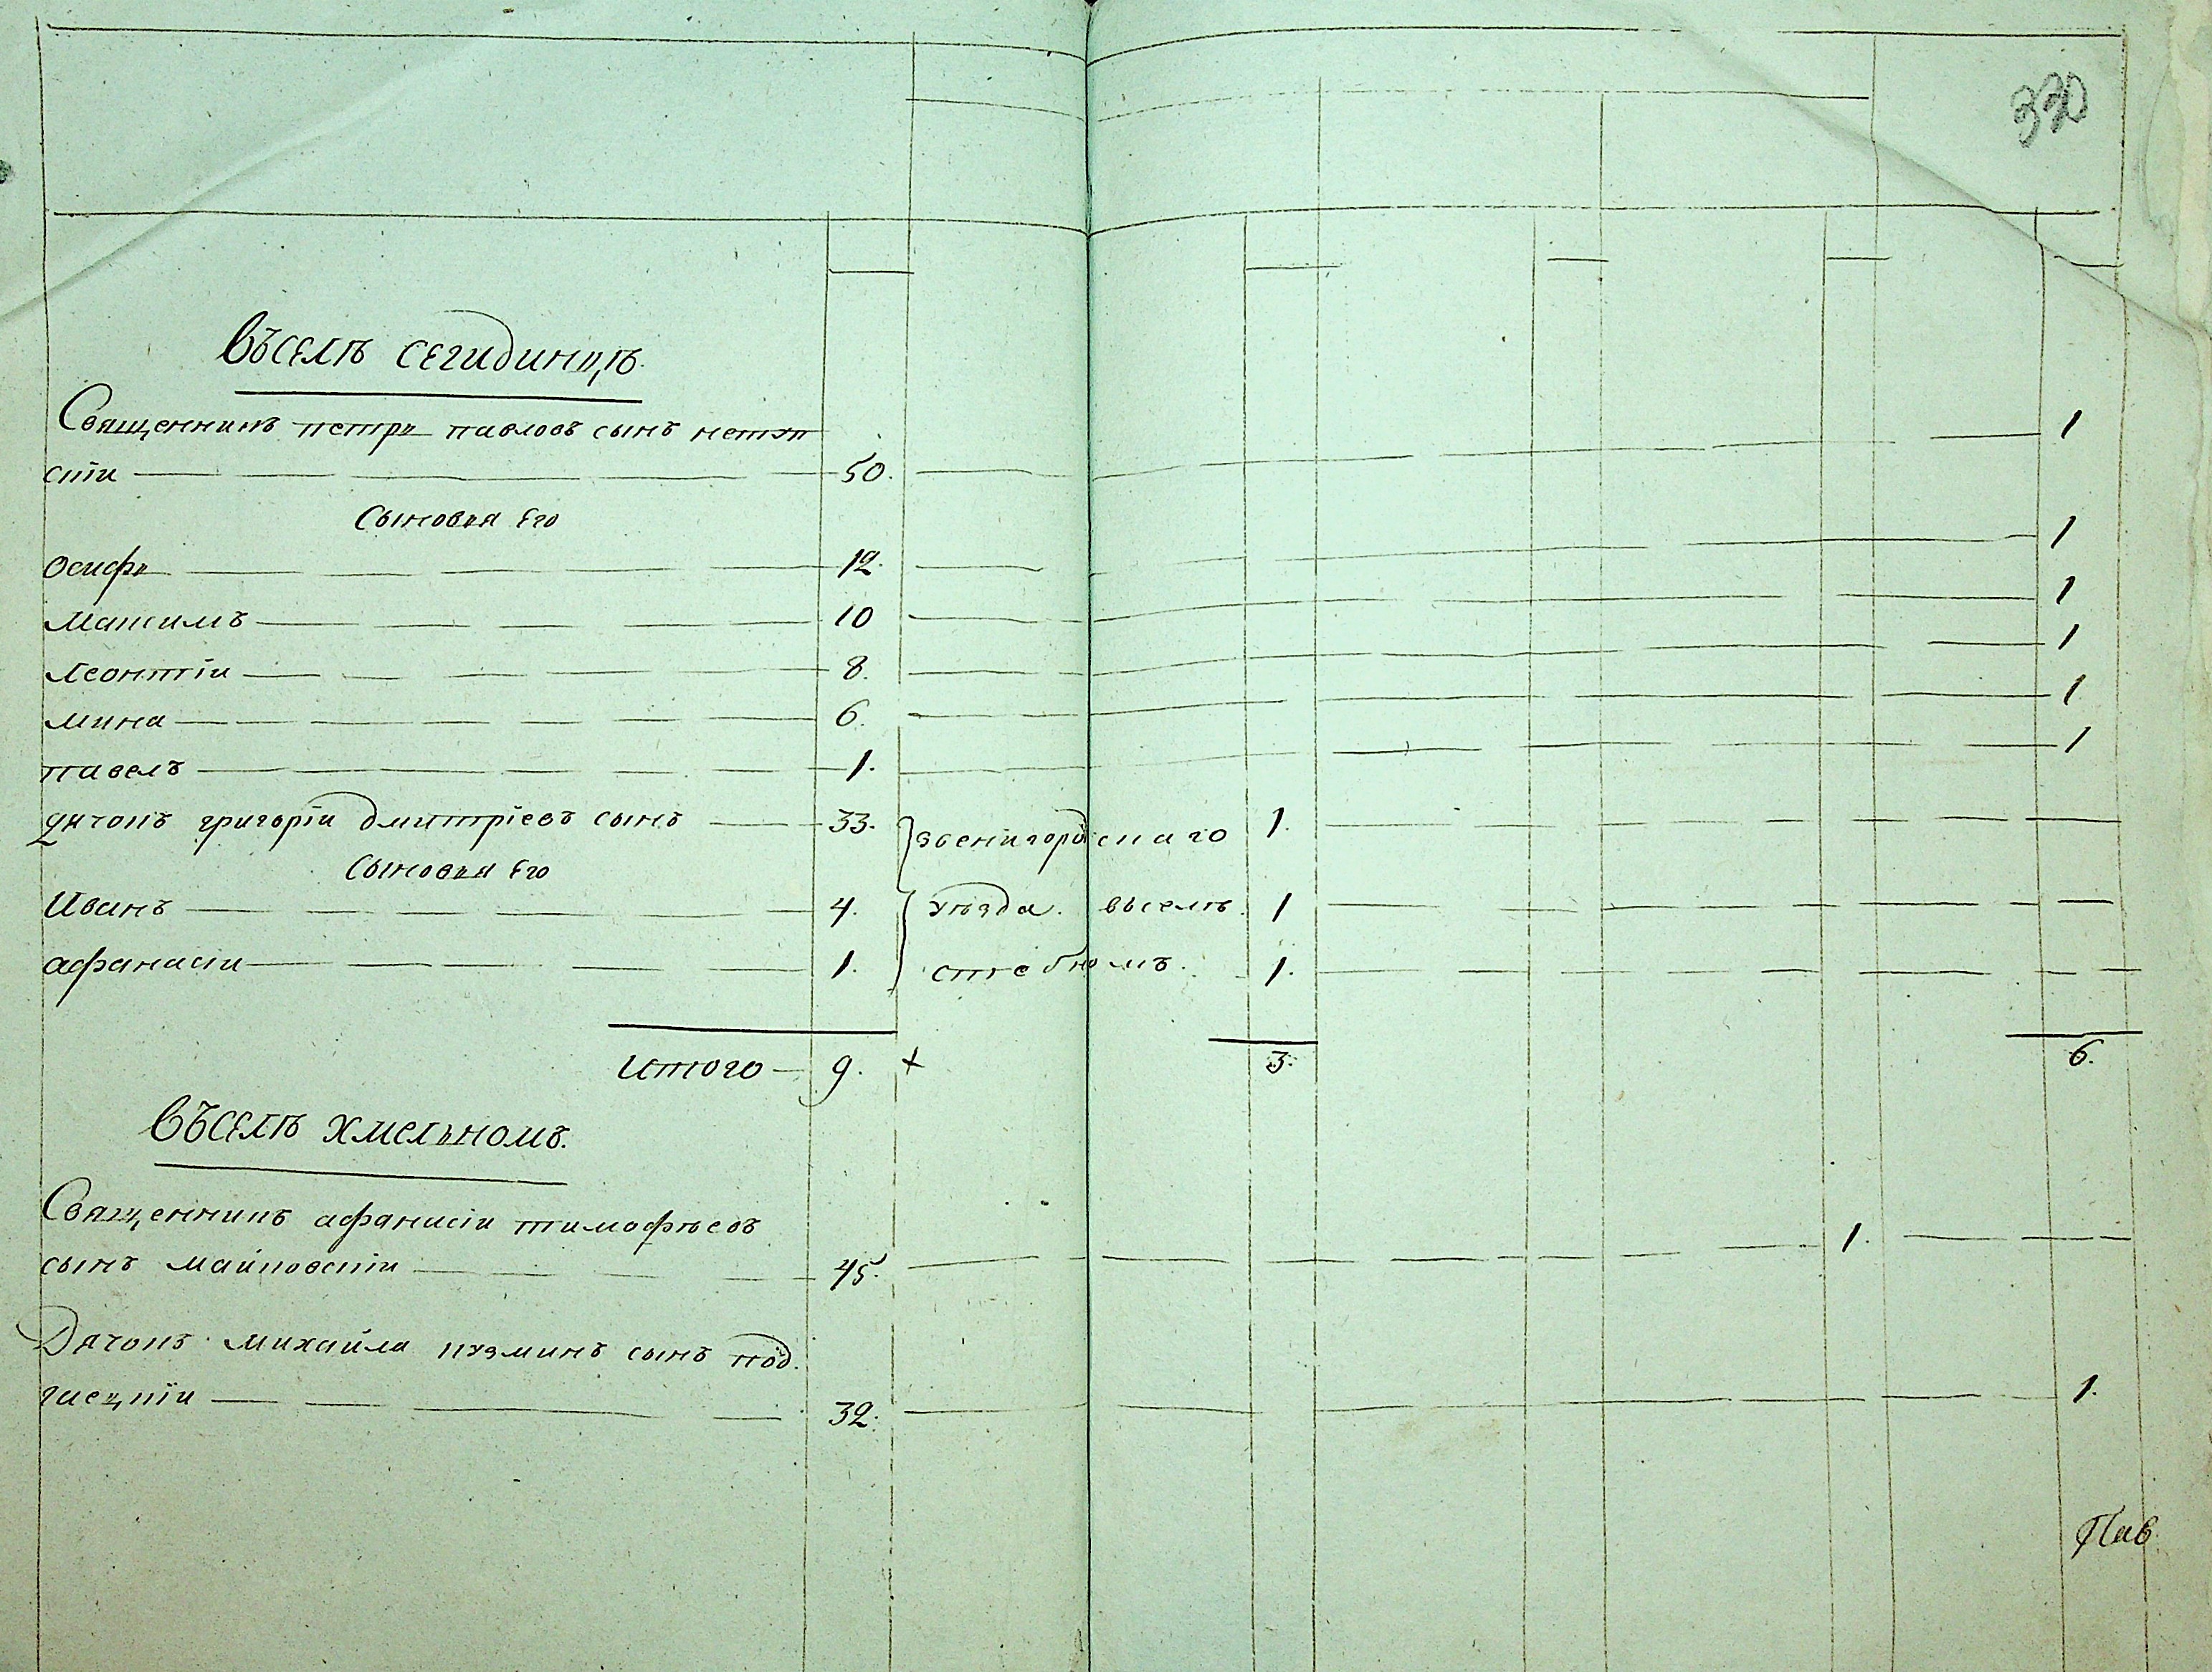 330
Въселѣ сегидинцѣ.
Священникъ петръ павловъ сынъ
скіи — 50. — 1
Сыновья Его
Осифъ — 12. — 1
Максимъ — 10 — 1
Леонтіи — 8. — 1
мина — 6. — 1
павелъ — 1. — 1
дячокъ григоріи дмитріевъ сынъ — 33. звенигородскаго 1. —
Сыновья Его
Иванъ — 4. уѣзда. въселѣ. 1 —
афанасіи — 1. стебномъ. 1. —
Итого — 9. + 3. 6.
Въселѣ хмельномъ.
Священникъ афанасіи тимофѣевъ
сынъ майковскіи — 45. — 1. —
Дячокъ михайла кузминъ сынъ под
гаецкіи — 32. — 1.
Пав